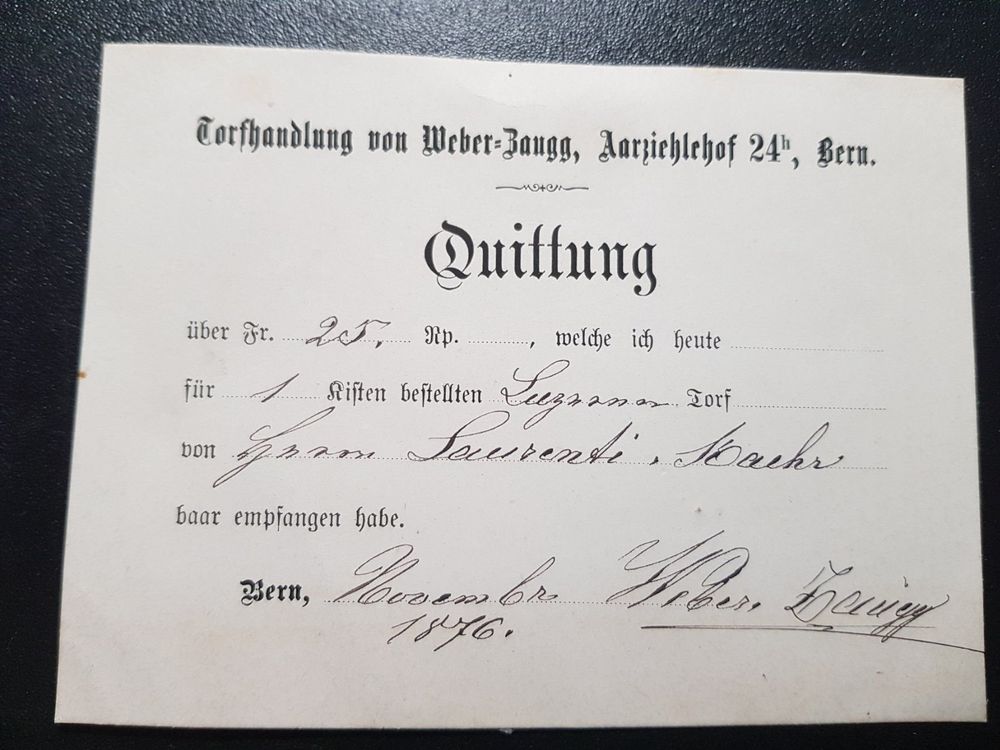 Torfhandlung von Weber-Zaugg, Aarziehlehof 24h, Bern.
Quittung
über Fr. 25. Rp. , welche ich heute
für 1 Kisten bestellten Luzerner Torf
von Herrn Laurenti.
baar empfangen habe.
Bern, Novembr Weber. Zaugg
1876.